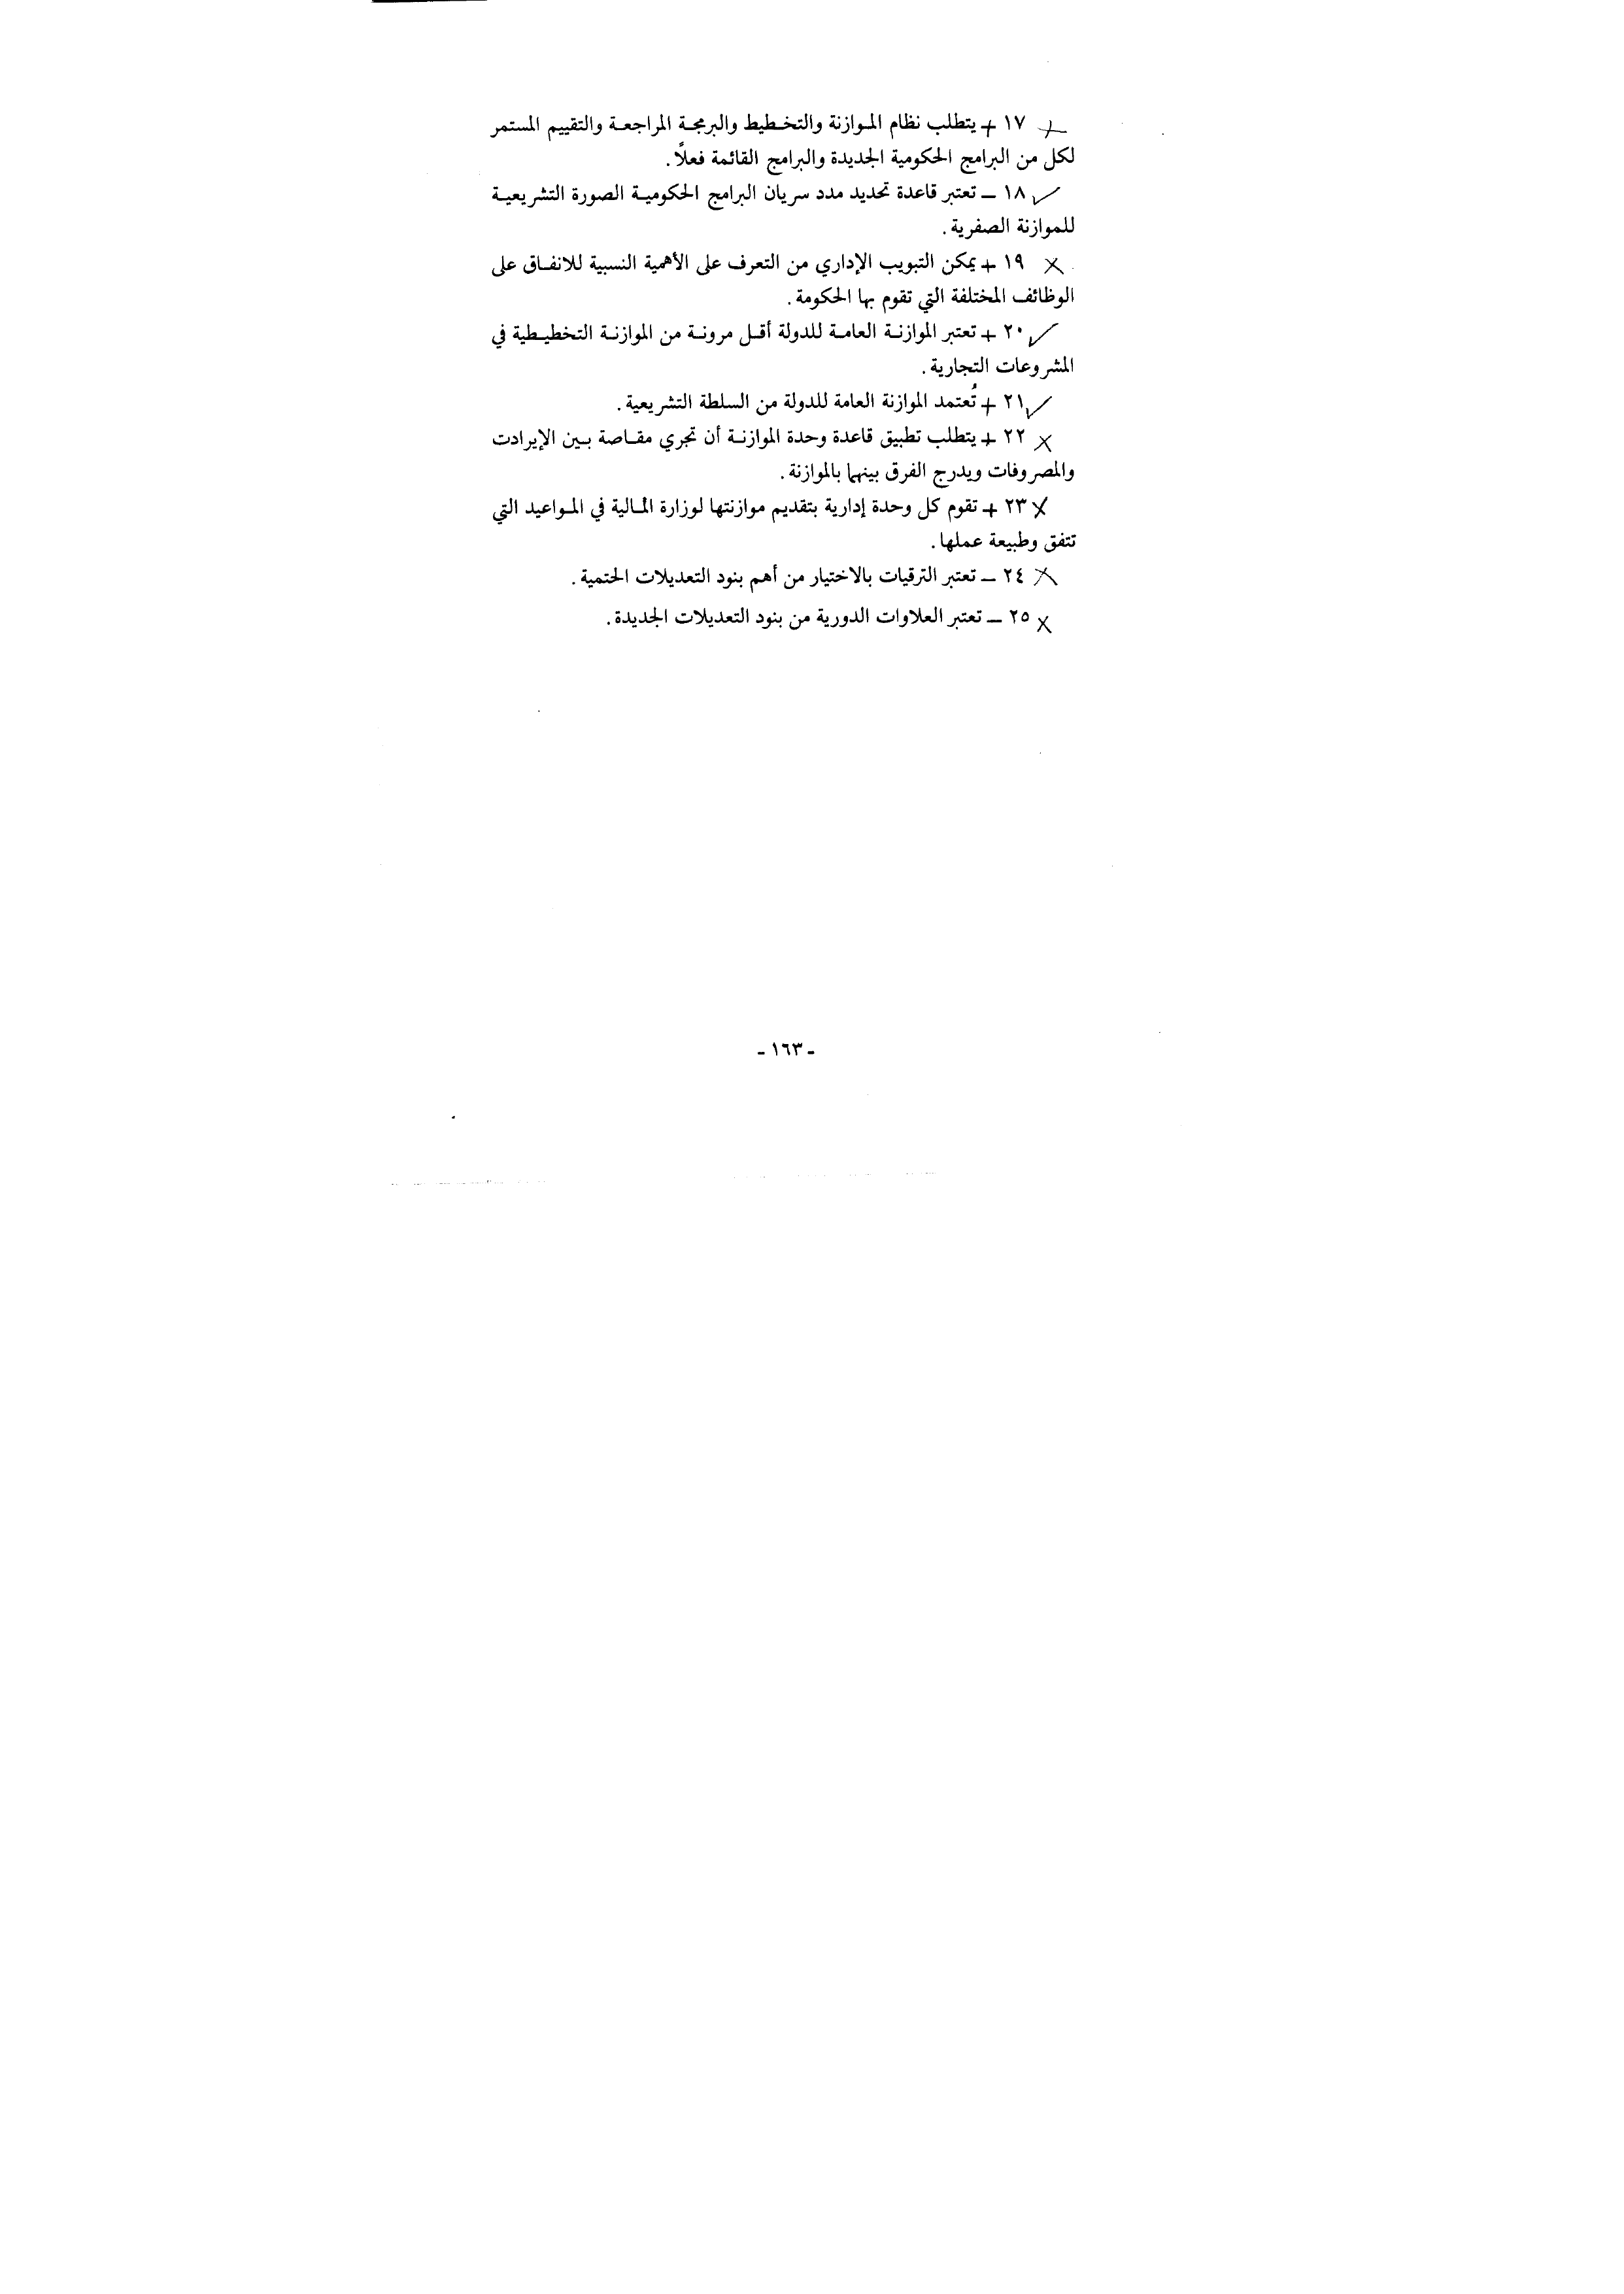 ✗ ١٧ + يتطلب نظام الموازنة والتخطيط والبرمجة المراجعة والتقييم المستمر
لكل من البرامج الحكومية الجديدة والبرامج القائمة فعلاً.
✓ ١٨ ــ تعتبر قاعدة تحديد مدد سريان البرامج الحكومية الصورة التشريعية
للموازنة الصفرية.
✗ ١٩ + يمكن التبويب الإداري من التعرف على الأهمية النسبية للانفاق على
الوظائف المختلفة التي تقوم بها الحكومة.
✓ ٢٠ + تعتبر الموازنة العامة للدولة أقل مرونة من الموازنة التخطيطية في
المشروعات التجارية.
✓ ٢١ + تُعتمد الموازنة العامة للدولة من السلطة التشريعية.
✗ ٢٢ + يتطلب تطبيق قاعدة وحدة الموازنة أن تجري مقاصة بين الإيرادت
والمصروفات ويدرج الفرق بينهما بالموازنة.
✗ ٢٣ + تقوم كل وحدة إدارية بتقديم موازنتها لوزارة المالية في المواعيد التي
تتفق وطبيعة عملها.
✗ ٢٤ ــ تعتبر الترقيات بالاختيار من أهم بنود التعديلات الحتمية.
✗ ٢٥ ــ تعتبر العلاوات الدورية من بنود التعديلات الجديدة.
- ١٦٣ -